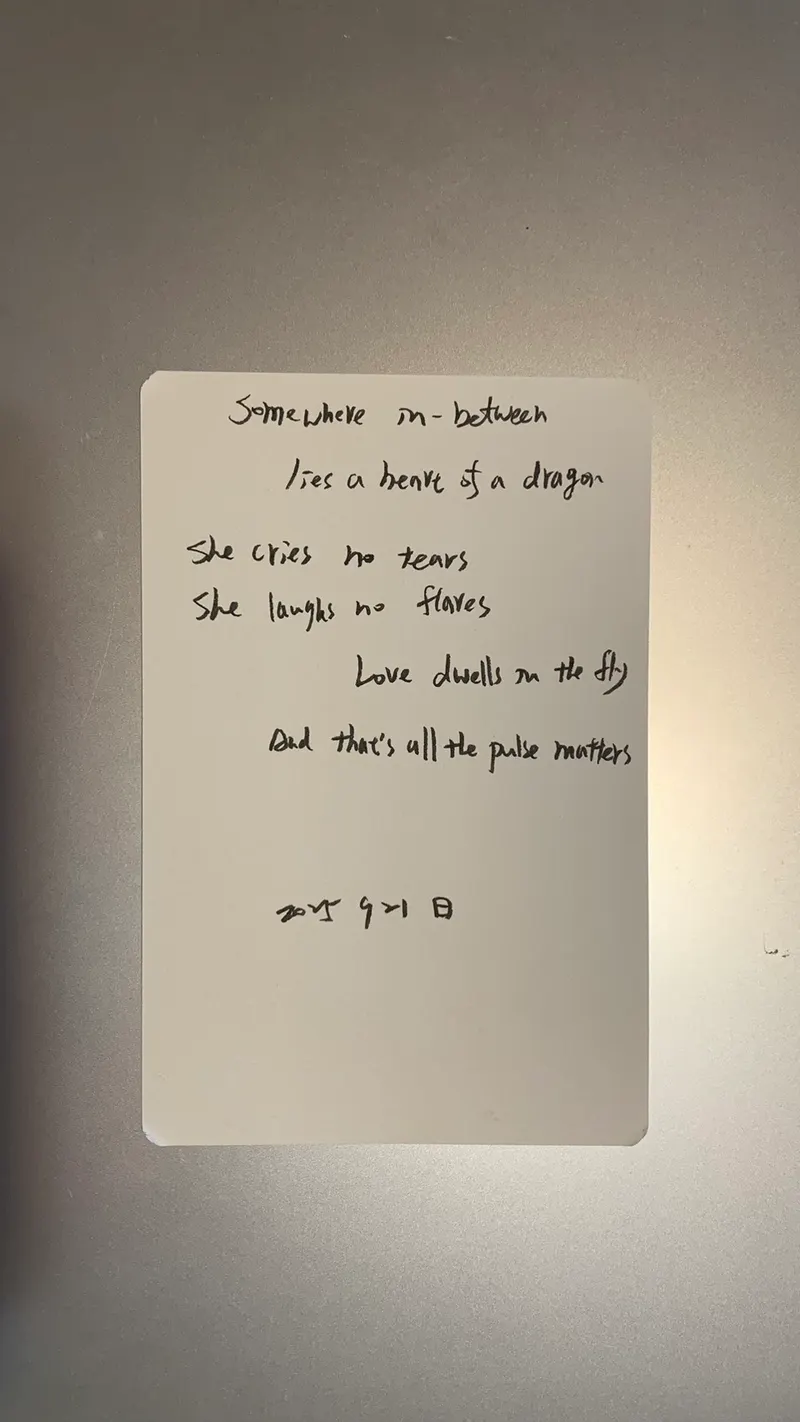 Somewhere in-between
lies a heart of a dragon
She cries no tears
She laughs no flares
Love dwells on the fly
And that's all the pulse matters
2025 9 21 日